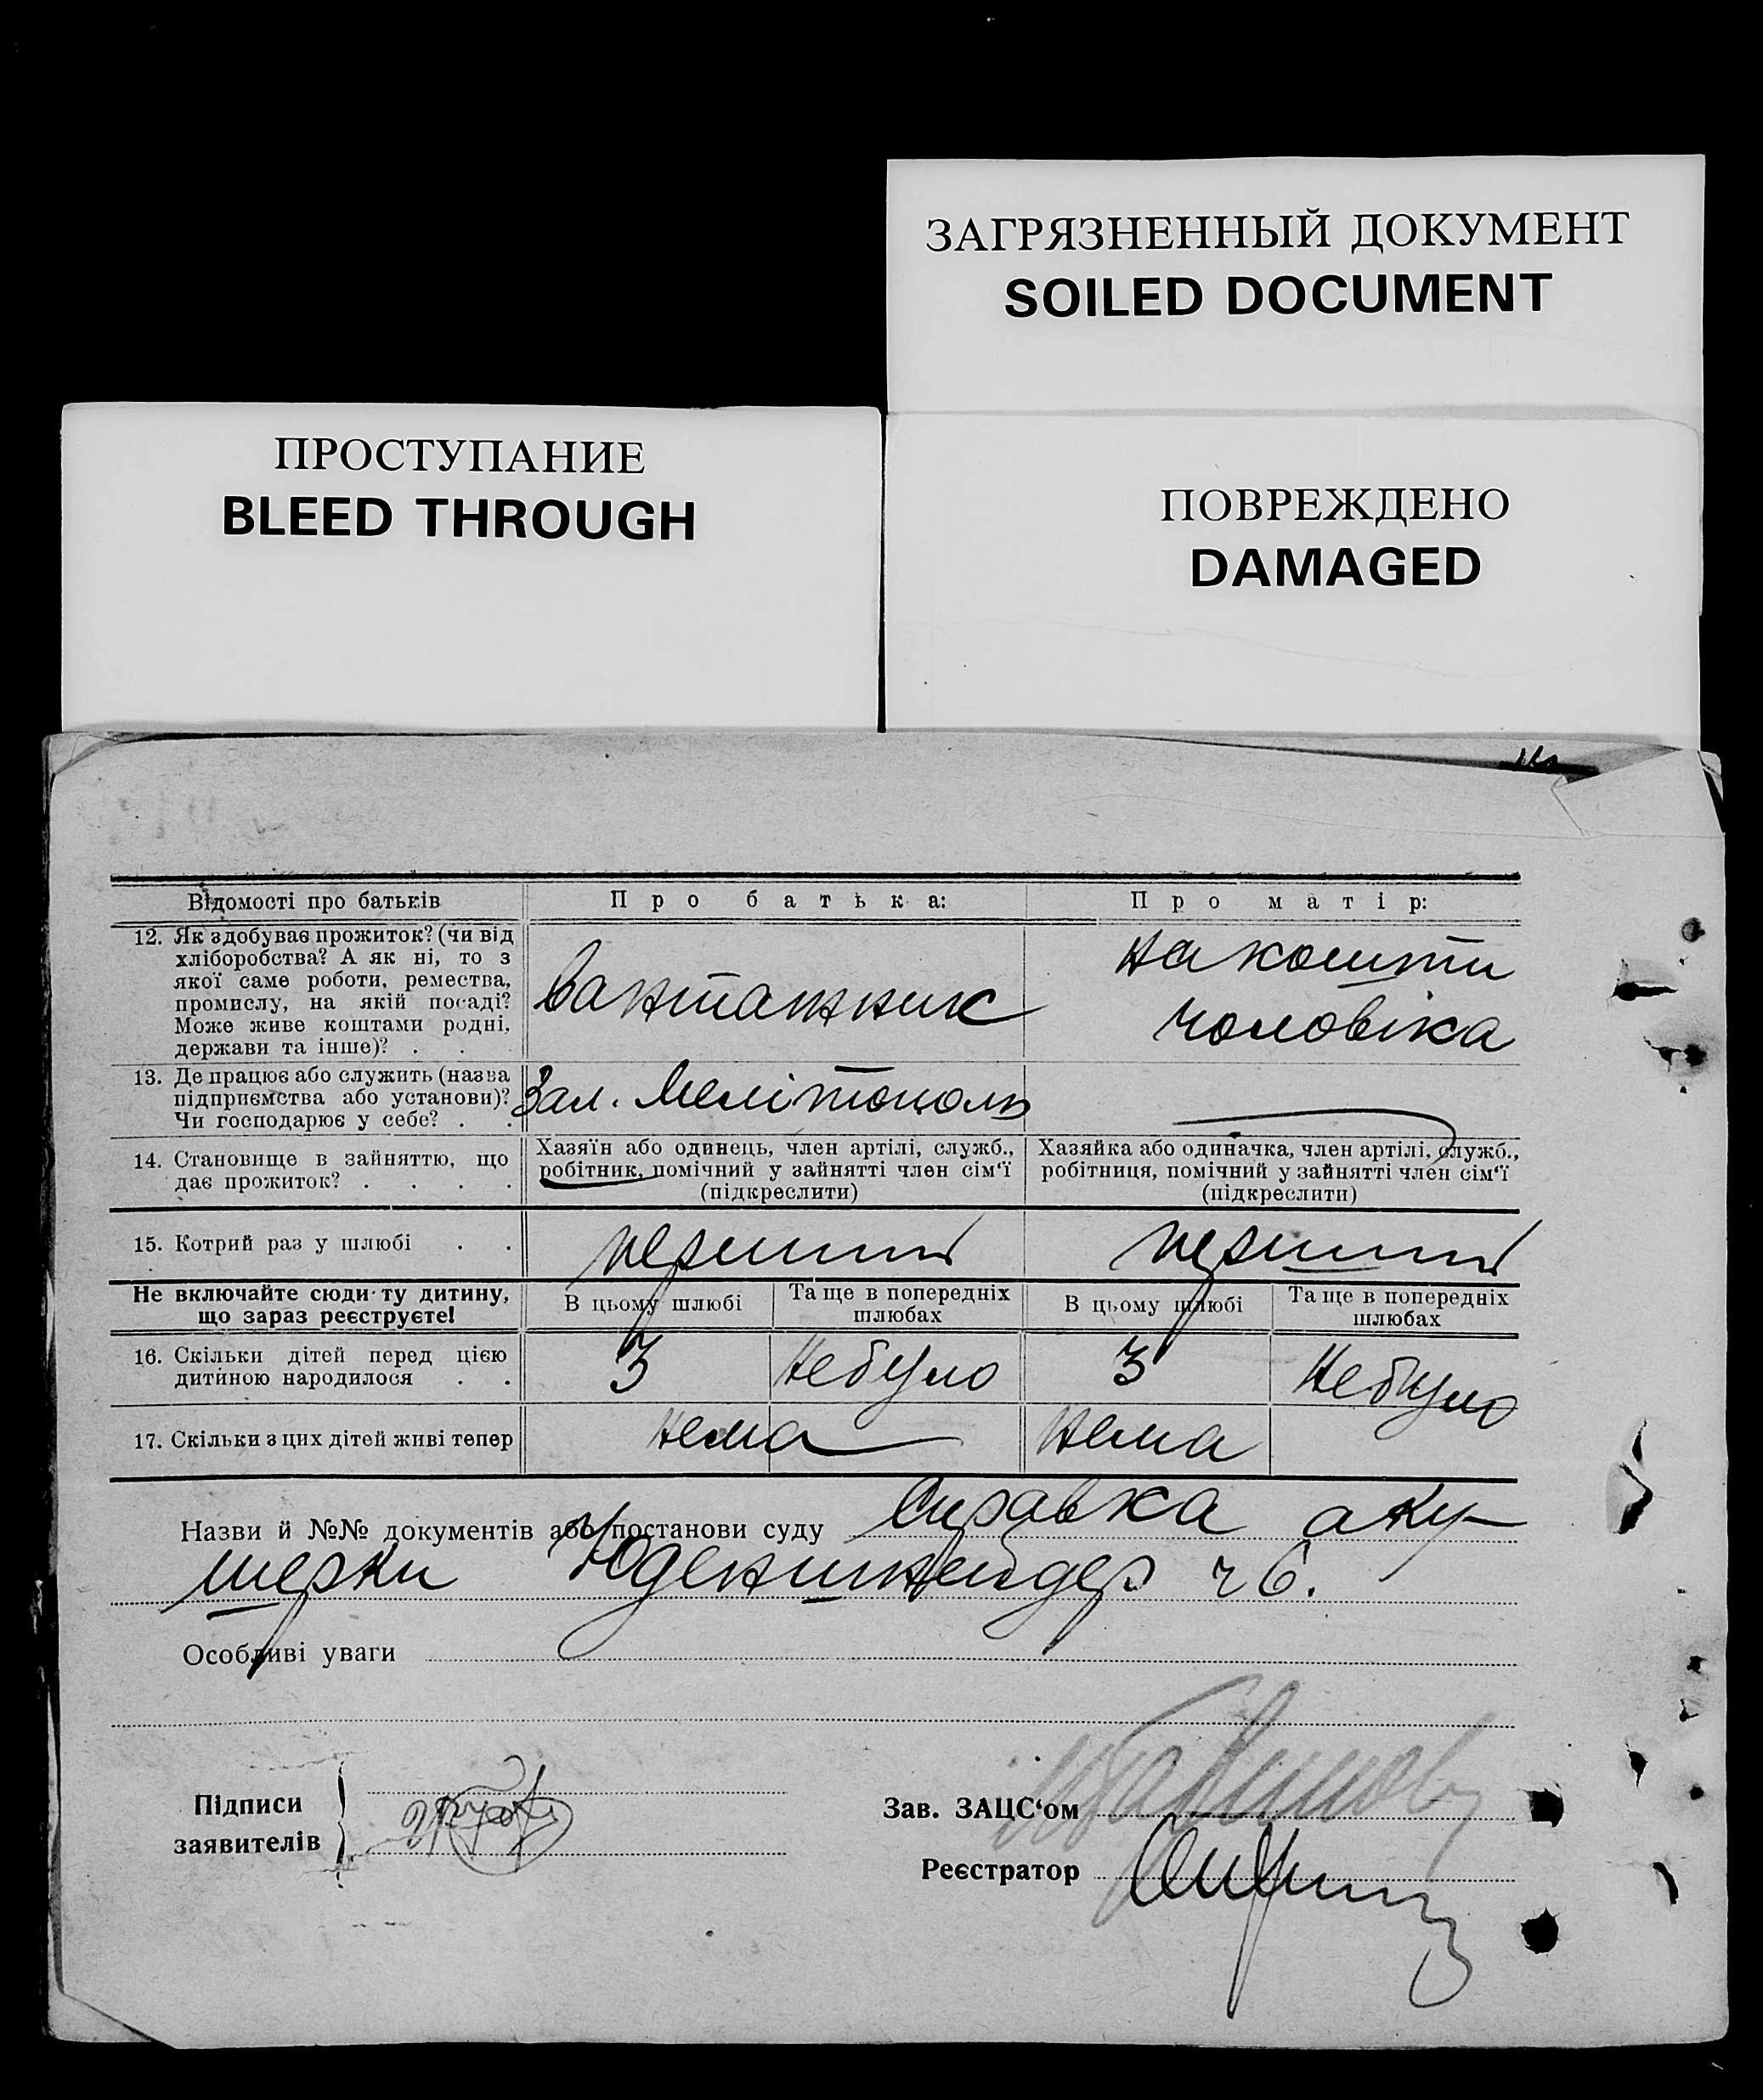 ЗАГРЯЗНЕННЫЙ ДОКУМЕНТ
SOILED DOCUMENT
ПРОСТУПАНИЕ
BLEED THROUGH
ПОВРЕЖДЕНО
DAMAGED
Відомості про батьків
Про батька:
Про матір:
12. Як здобуває прожиток? (чи від
хліборобства? А як ні, то з
якої саме роботи, ремества,
промислу, на якій посаді?
Може живе коштами родні,
держави та інше)? . .
Вантажник
на кошти
чоловіка
13. Де працює або служить (назва
підприємства або установи)?
Чи господарює у себе? . .
Зал. Мелітополь
14. Становище в зайняттю, що
дає прожиток? . . . .
Хазяїн або одинець, член артілі, служб.,
робітник, помічний у зайнятті член сім'ї
(підкреслити)
Хазяйка або одиначка, член артілі, служб.,
робітниця, помічний у зайнятті член сім'ї
(підкреслити)
15. Котрий раз у шлюбі . .
перший
перший
Не включайте сюди ту дитину,
що зараз реєструєте!
В цьому шлюбі
Та ще в попередніх
шлюбах
В цьому шлюбі
Та ще в попередніх
шлюбах
16. Скільки дітей перед цією
дитиною народилося . .
3
Небуло
3
Небуло
17. Скільки з цих дітей живі тепер
Нема
Нема
Назви й №№ документів або постанови суду Справка аку-
шерки Юденшнейдер ч 6.
Особливі уваги
Підписи
заявителів
Зав. ЗАЦС'ом
Реєстратор